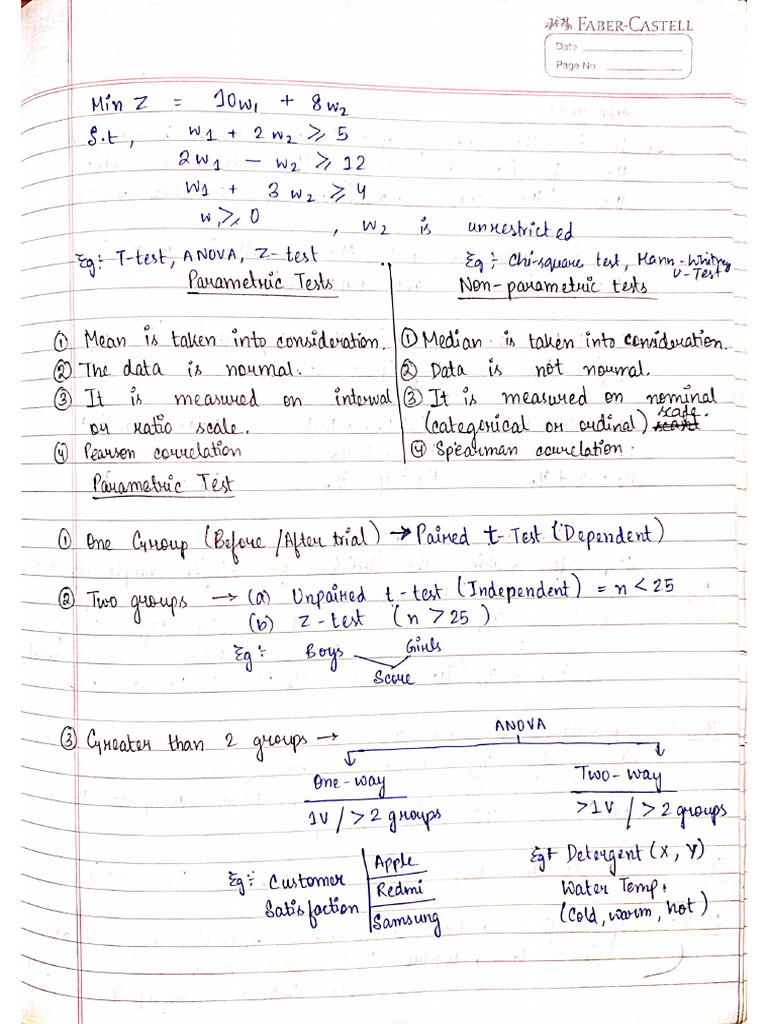 FABER-CASTELL
Date
Page No.
Min Z = 10w1 + 8w2
S.t, w1 + 2w2 ⩾ 5
2w1 - w2 ⩾ 12
w1 + 3w2 ⩾ 4
w1 ⩾ 0, w2 is unrestricted
Eg:- T-test, ANOVA, Z-test
Parametric Tests
① Mean is taken into consideration.
② The data is normal.
③ It is measured on interval
or ratio scale.
④ Pearson correlation
Eg:- Chi-square test, Mann-Whitney
U-Test
Non-parametric tests
① Median is taken into consideration.
② Data is not normal.
③ It is measured on nominal
(categorical or ordinal) scale.
④ Spearman correlation.
Parametric Test
① One Group (Before/After trial) → Paired t-Test (Dependent)
② Two groups → (a) Unpaired t-test (Independent) = n < 25
(b) Z-test (n > 25)
Eg:- Boys Girls
Score
③ Greater than 2 groups →
ANOVA
One-way
1V / > 2 groups
Eg:- Customer
Satisfaction
Apple
Redmi
Samsung
Two-way
>1V / > 2 groups
Eg:- Detergent (X, Y)
Water Temp.
(Cold, warm, hot)